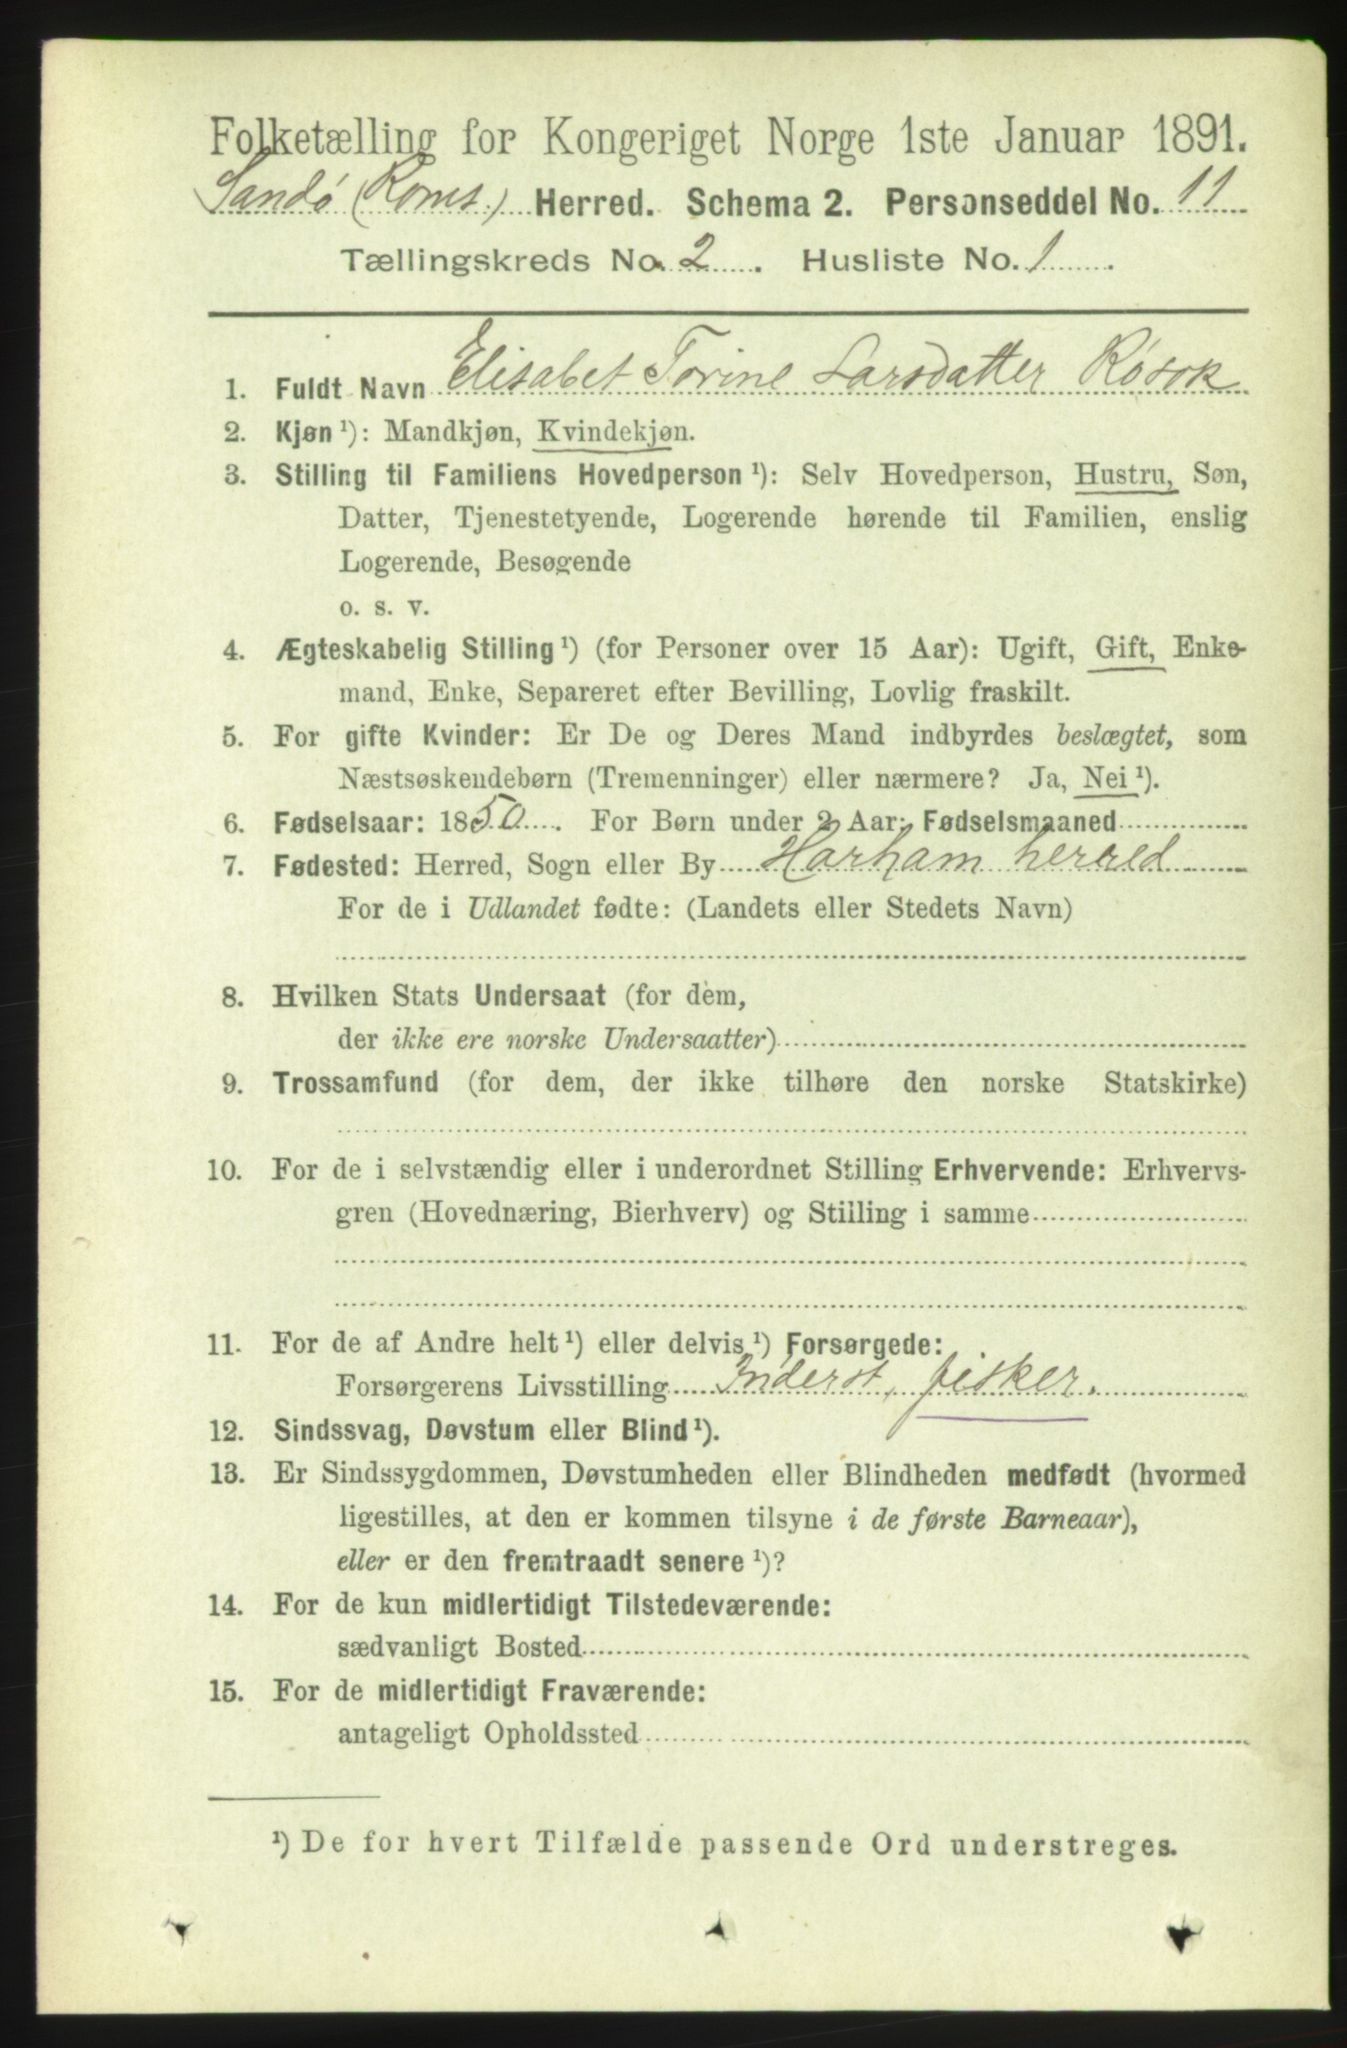 Folketælling for Kongeriget Norge 1ste Januar 1891.
Sandø (Roms.) Herred. Schema 2. Personseddel No. 11
Tællingskreds No. 2. Husliste No. 1.
1. Fuldt Navn Elisabet Torine Larsdatter Røsok
2. Kjøn ¹): Mandkjøn, Kvindekjøn.
3. Stilling til Familiens Hovedperson ¹): Selv Hovedperson, Hustru, Søn,
Datter, Tjenestetyende, Logerende hørende til Familien, enslig
Logerende, Besøgende
o. s. v.
4. Ægteskabelig Stilling ¹) (for Personer over 15 Aar): Ugift, Gift, Enke-
mand, Enke, Separeret efter Bevilling, Lovlig fraskilt.
5. For gifte Kvinder: Er De og Deres Mand indbyrdes beslægtet, som
Næstsøskendebørn (Tremenninger) eller nærmere? Ja, Nei ¹).
6. Fødselsaar: 1850. For Børn under 2 Aar: Fødselsmaaned
7. Fødested: Herred, Sogn eller By Harham herred
For de i Udlandet fødte: (Landets eller Stedets Navn)
8. Hvilken Stats Undersaat (for dem,
der ikke ere norske Undersaatter)
9. Trossamfund (for dem, der ikke tilhøre den norske Statskirke)
10. For de i selvstændig eller i underordnet Stilling Erhvervende: Erhvervs-
gren (Hovednæring, Bierhverv) og Stilling i samme
11. For de af Andre helt ¹) eller delvis ¹) Forsørgede:
Forsørgerens Livsstilling Inderst, fisker.
12. Sindssvag, Døvstum eller Blind ¹).
13. Er Sindssygdommen, Døvstumheden eller Blindheden medfødt (hvormed
ligestilles, at den er kommen tilsyne i de første Barneaar),
eller er den fremtraadt senere ¹)?
14. For de kun midlertidigt Tilstedeværende:
sædvanligt Bosted
15. For de midlertidigt Fraværende:
antageligt Opholdssted
¹) De for hvert Tilfælde passende Ord understreges.